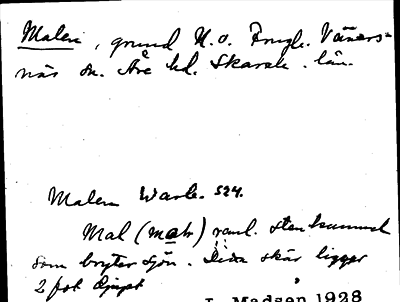 Malen, grund N.O. Väners-
näs sn. Åse hd. Skarab. län.
Malen Warb. 524.
Mal (mal) saml. stenkummel
som bryter sjön. Dessa skär ligger
2 fot djupt
I. Madsen 1928